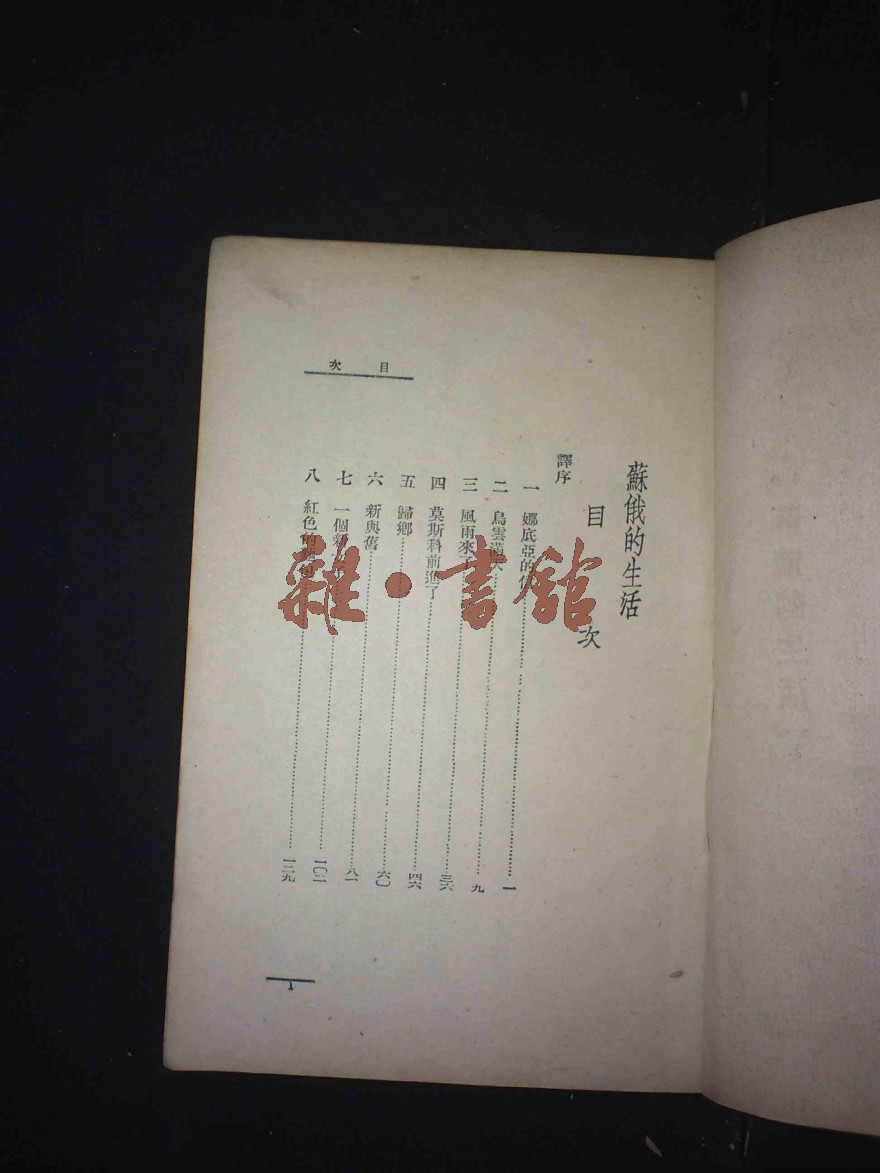 目次
蘇俄的生活
目次
譯序
一 娜底亞的信……一
二 烏雲滿天……九
三 風雨來了……三六
四 莫斯科前進了……四六
五 歸鄉……六〇
六 新與舊……八一
七 一個新
八 紅色的
1
雜·書館